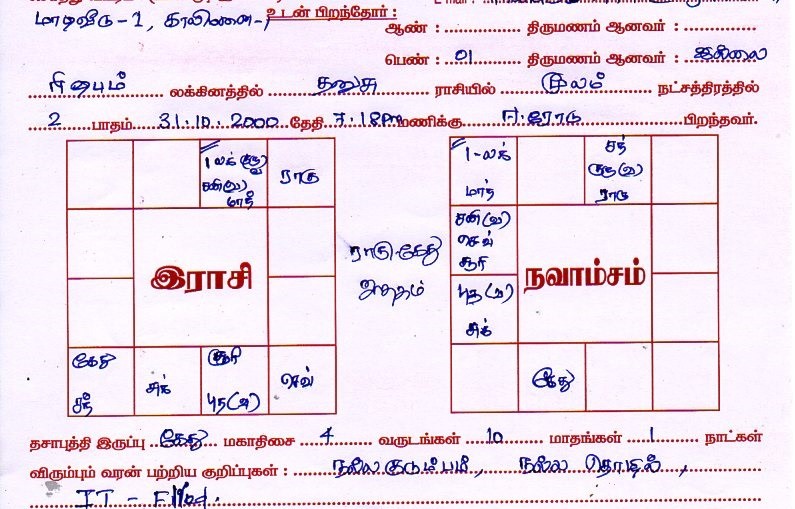 மாடிவீடு - 1, காலிமனை - 1
உடன் பிறந்தோர் :
ஆண் : திருமணம் ஆனவர் :
பெண் : 01 திருமணம் ஆனவர் : இல்லை
ரிஷபம் லக்கினத்தில் தனுசு ராசியில் மூலம் நட்சத்திரத்தில்
2 பாதம் 31.10.2000 தேதி 7.18 PM மணிக்கு ஈரோடு பிறந்தவர்.
1 லக் குரு சனி(வ) மாந்
ராகு
இராசி
கேது சந்
சுக்
சூரி புத(வ)
செவ்
ராகு கேது
1-லக் மாந்
சந் குரு(வ) ராகு
சனி(வ) செவ் சூரி
புத(வ) சுக்
நவாம்சம்
கேது
தசாபுத்தி இருப்பு கேது மகாதிசை 4 வருடங்கள் 10 மாதங்கள் 1 நாட்கள்
விரும்பும் வரன் பற்றிய குறிப்புகள் : நல்ல குடும்பம், நல்ல தொழில்,
IT -